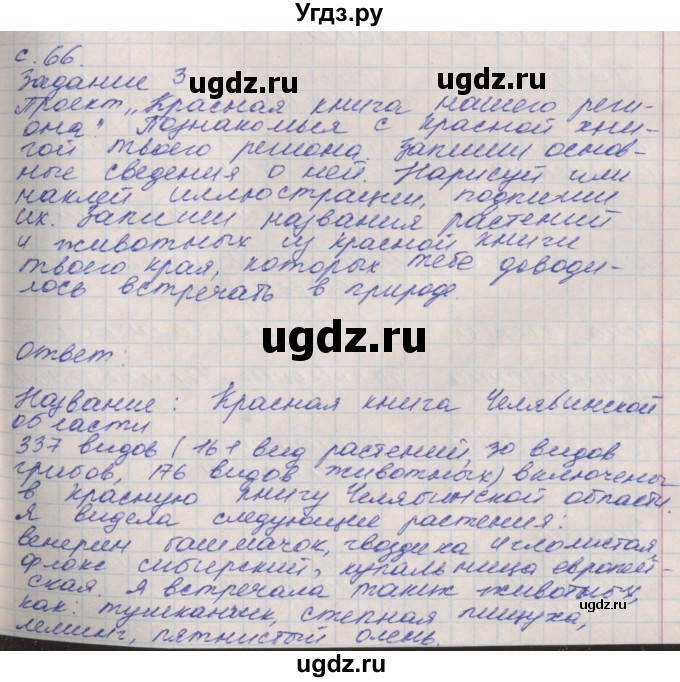 Угдз.ру
с. 66.
Задание 3
ugdz.ru
Проект „Красная книга нашего реги-
она". Познакомься с Красной кни-
гой твоего региона. Запиши основ-
ные сведения о ней. Нарисуй или
наклей иллюстрации, подпиши
их. Запиши названия растений
и животных из красной книги
твоего края, которых тебе доводи-
лось встречать в природе.
ugdz.ru
Ответ:
Название: Красная книга Челябинской
области
337 видов (161 вид растений, 30 видов
грибов, 176 видов животных) включены
в красную книгу Челябинской области.
Я видела следующие растения:
венерин башмачок, гвоздика иглолистая,
флокс сибирский, купальница европей-
ская. Я встречала таких животных,
как: тушканчик, степная пищуха,
лемминг, пятнистый олень.
ugdz.ru
ugdz.ru